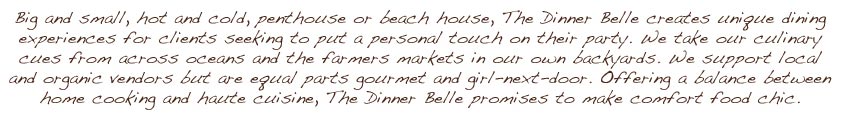 Big and small, hot and cold, penthouse or beach house, The Dinner Belle creates unique dining
experiences for clients seeking to put a personal touch on their party. We take our culinary
cues from across oceans and the farmers markets in our own backyards. We support local
and organic vendors but are equal parts gourmet and girl-next-door. Offering a balance between
home cooking and haute cuisine, The Dinner Belle promises to make comfort food chic.